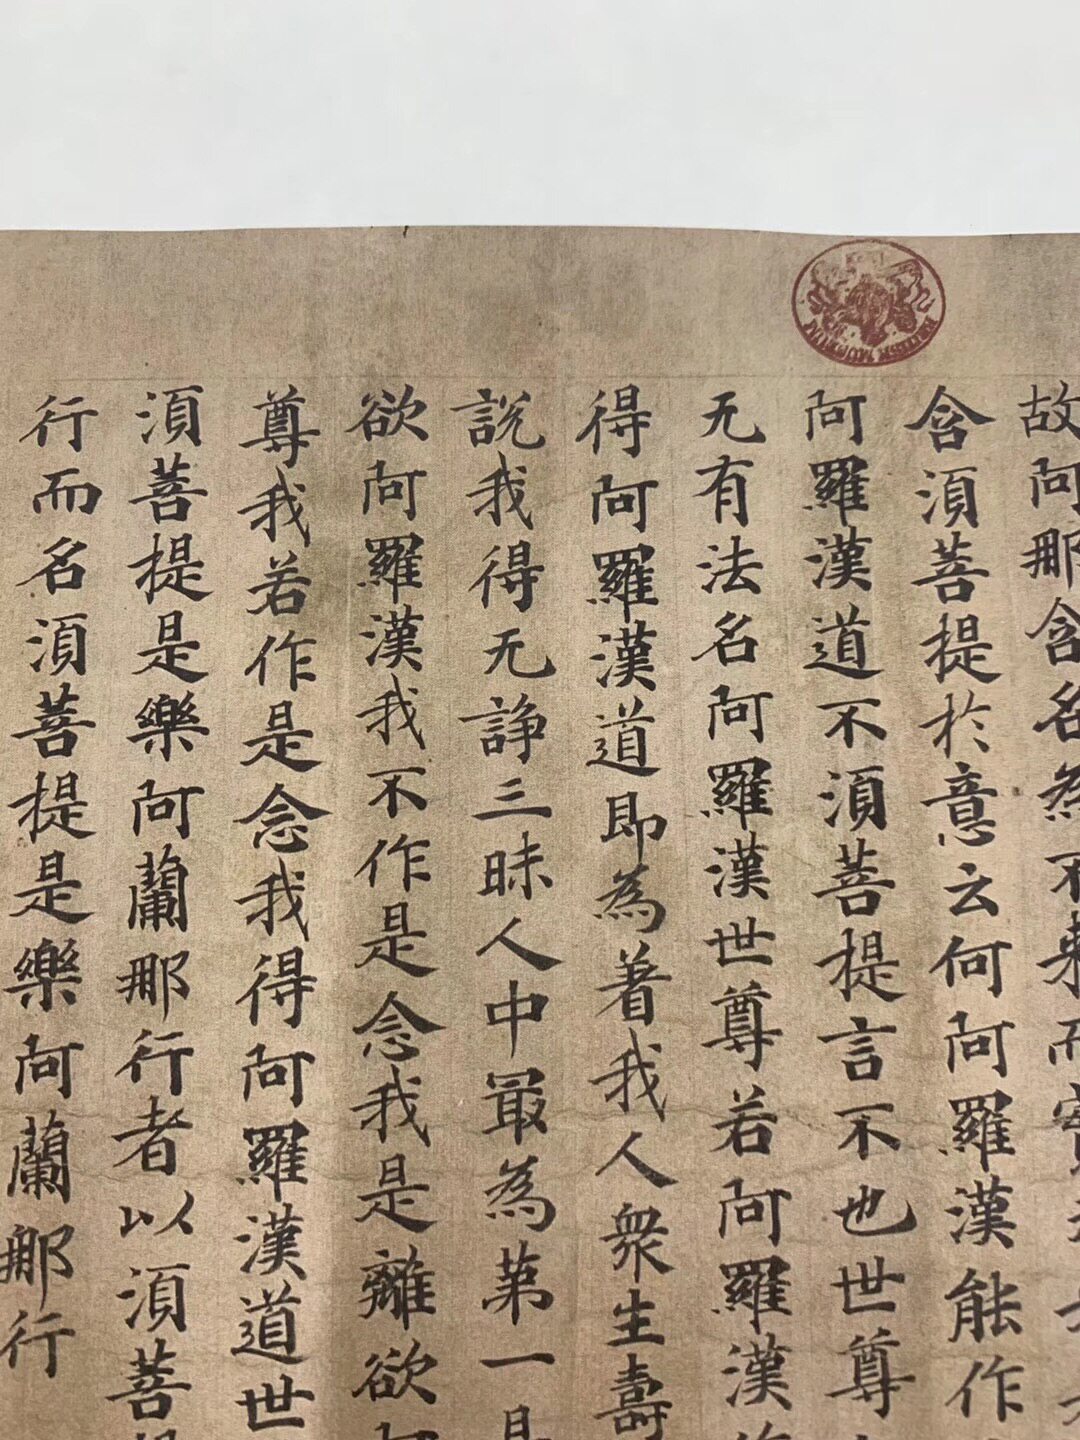 故阿那含名為不來而實
含須菩提於意云何阿羅漢能作
阿羅漢道不須菩提言不也世尊
无有法名阿羅漢世尊若阿羅漢
得阿羅漢道即為著我人衆生壽
說我得无諍三昧人中最為第一是
欲阿羅漢我不作是念我是離欲阿
尊我若作是念我得阿羅漢道世
須菩提是樂阿蘭那行者以須菩提
行而名須菩提是樂阿蘭那行
BRITISH MUSEUM